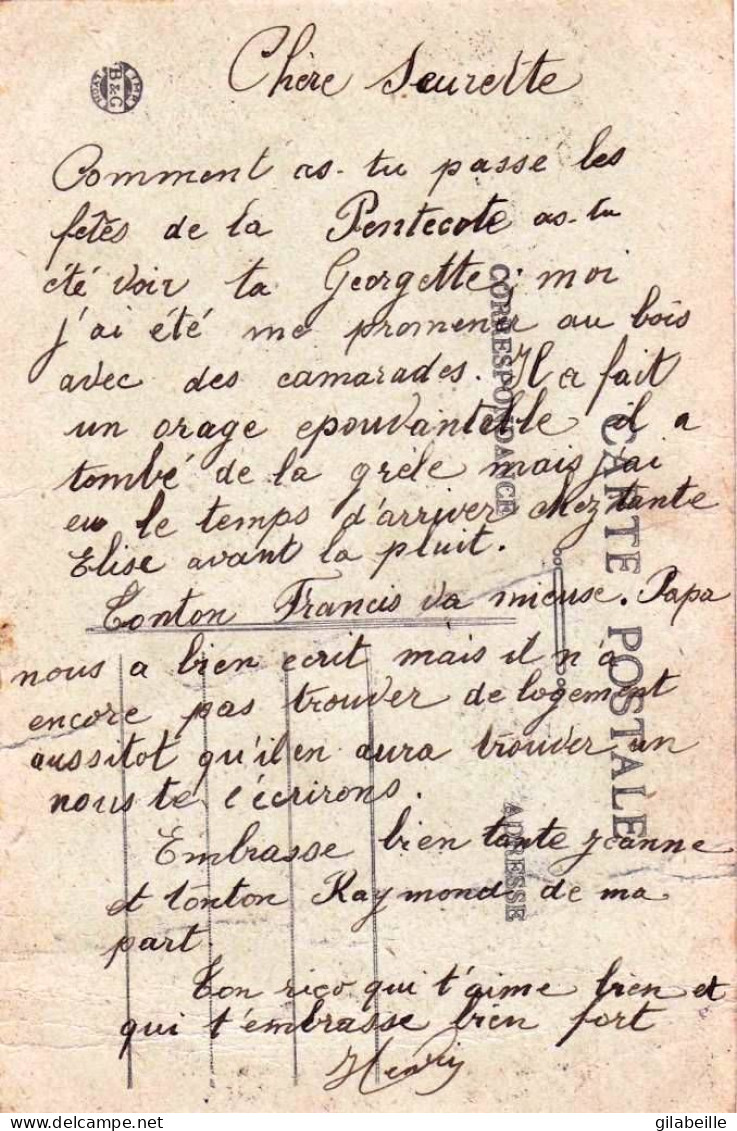 Chère Seurette
Comment as-tu passe les
fetês de la Pentecote as-tu
été voir ta Georgette; moi
j'ai été me promener au bois
avec des camarades. Il a fait
un orage epouvantelle il a
tombé de la grèle mais j'ai
eu le temps d'arriver chez tante
Elise avant la pluit.
Tonton Francis va mieuse. Papa
nous a bien ecrit mais il n'a
encore pas trouver de logement
aussitot qu'il en aura trouver un
nous te l'écrirons.
Embrasse bien tante Jeanne
et tonton Raymond de ma
part.
Ton rico qui t'aime bien et
qui t'embrasse bien fort
Henry
CARTE POSTALE
CORRESPONDANCE
ADRESSE
IMP.
B & G
LYON
gilabeille